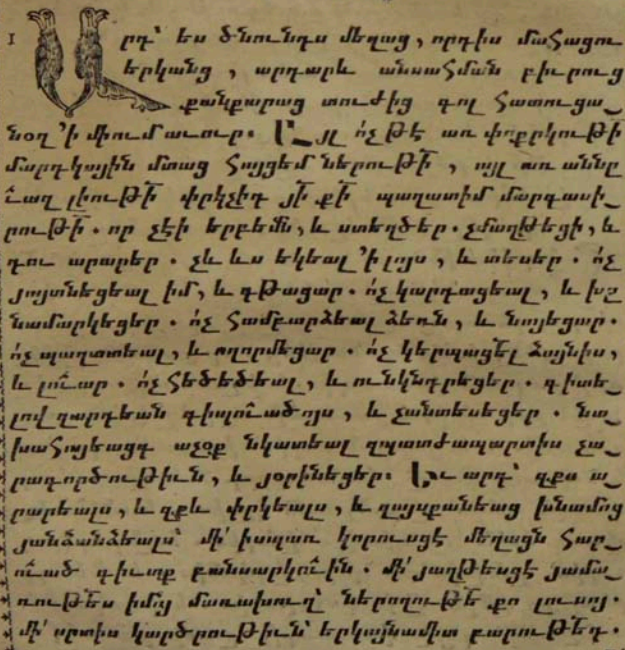 1 Արդ՝ ես ծնունդս մեղաց, որդիս մահացու
երկանց, արդարև անսահման բիւրուց
քանքարաց տուժից գոլ հատուցա֊
նօղ ՚ի միում աւուր։ Այլ ոչ թէ առ փոքրկութի
մարդկային մտաց հայցեմ ներութի, այլ առ աննը
ւաղ լիութի փրկչիդ յի քի պաղատիմ մարդասի֊
րութի. որ չէի երբեմն, և ստեղծեր. չմաղթեցի, և
դու արարեր. չև ևս եկեալ ՚ի լոյս, և տեսեր. ոչ
յայտնեցեալ իմ, և գթացար. ոչ կարդացեալ, և խը
նամարկեցեր. ոչ համբարձեալ ձեռն, և նայեցար.
ոչ պաղատեալ, և ողորմեցար. ոչ կերպացեալ ձայնիս,
և լուար. ոչ հեծեծեալ, և ունկնդրեցեր. գիտե֊
լով զարդեան գիպուածոյս, և չանտեսեցեր. նա֊
խահայեացդ աչօք նկատեալ զպատժապարտիս չա֊
րագործութիւն, և յօրինեցեր։ Եւ արդ՝ զքս ա֊
րարեալս, և զքև փրկեալս, և զայսքանեաց խնամոց
յանձանձեալս՝ մի՛ իսպառ կորուսցէ մեղացն հար֊
ուած գիւտք բանսարկուին. մի՛ յաղթեսցէ յամա֊
ռութես իմոյ մառախուղ՝ ներողութե քո լուսոյ.
մի՛ սրտիս կարծրութիւն՝ երկայնամիտ բարութեդ.